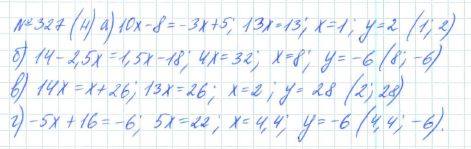 №327 (4) а) 10x-8=-3x+5; 13x=13; x=1; y=2 (1; 2)
б) 14-2,5x=1,5x-18; 4x=32; x=8; y=-6 (8; -6)
в) 14x=x+26; 13x=26; x=2; y=28 (2; 28)
г) -5x+16=-6; 5x=22; x=4,4; y=-6 (4,4; -6).